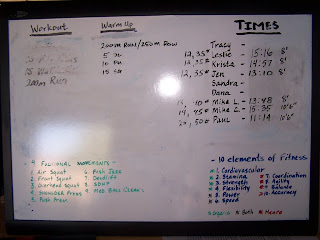 Workout
Warm Up
TIMES
200m Run/250m Row
5 Du
10 Pu
15 Sq
200m Run
Tracy -
12, 35# Leslie - 15:16 8'
12, 35# Krista - 14:57 8'
12, 35# Jen - 13:10 8'
Sandra -
Dana -
Mike L. - 13:48 8'
Mike L. - 15:35 10'
20, 50# Paul - 11:14 10'6"
- 9 Fuctional Movements -
1 Air Squat
2 Front Squat
3 Overhead Squat
4 Shoulder Press
5 Push Press
6 Push Jerk
7 Deadlift
8 SDHP
9 Med Ball Clean
- 10 elements of Fitness
1. Cardiovascular
2. Stamina
3. Strength
4. Flexibility
5. Power
6. Speed
7. Coordination
8. Agility
9. Balance
10. Accuracy
Organic
Both
Neuro